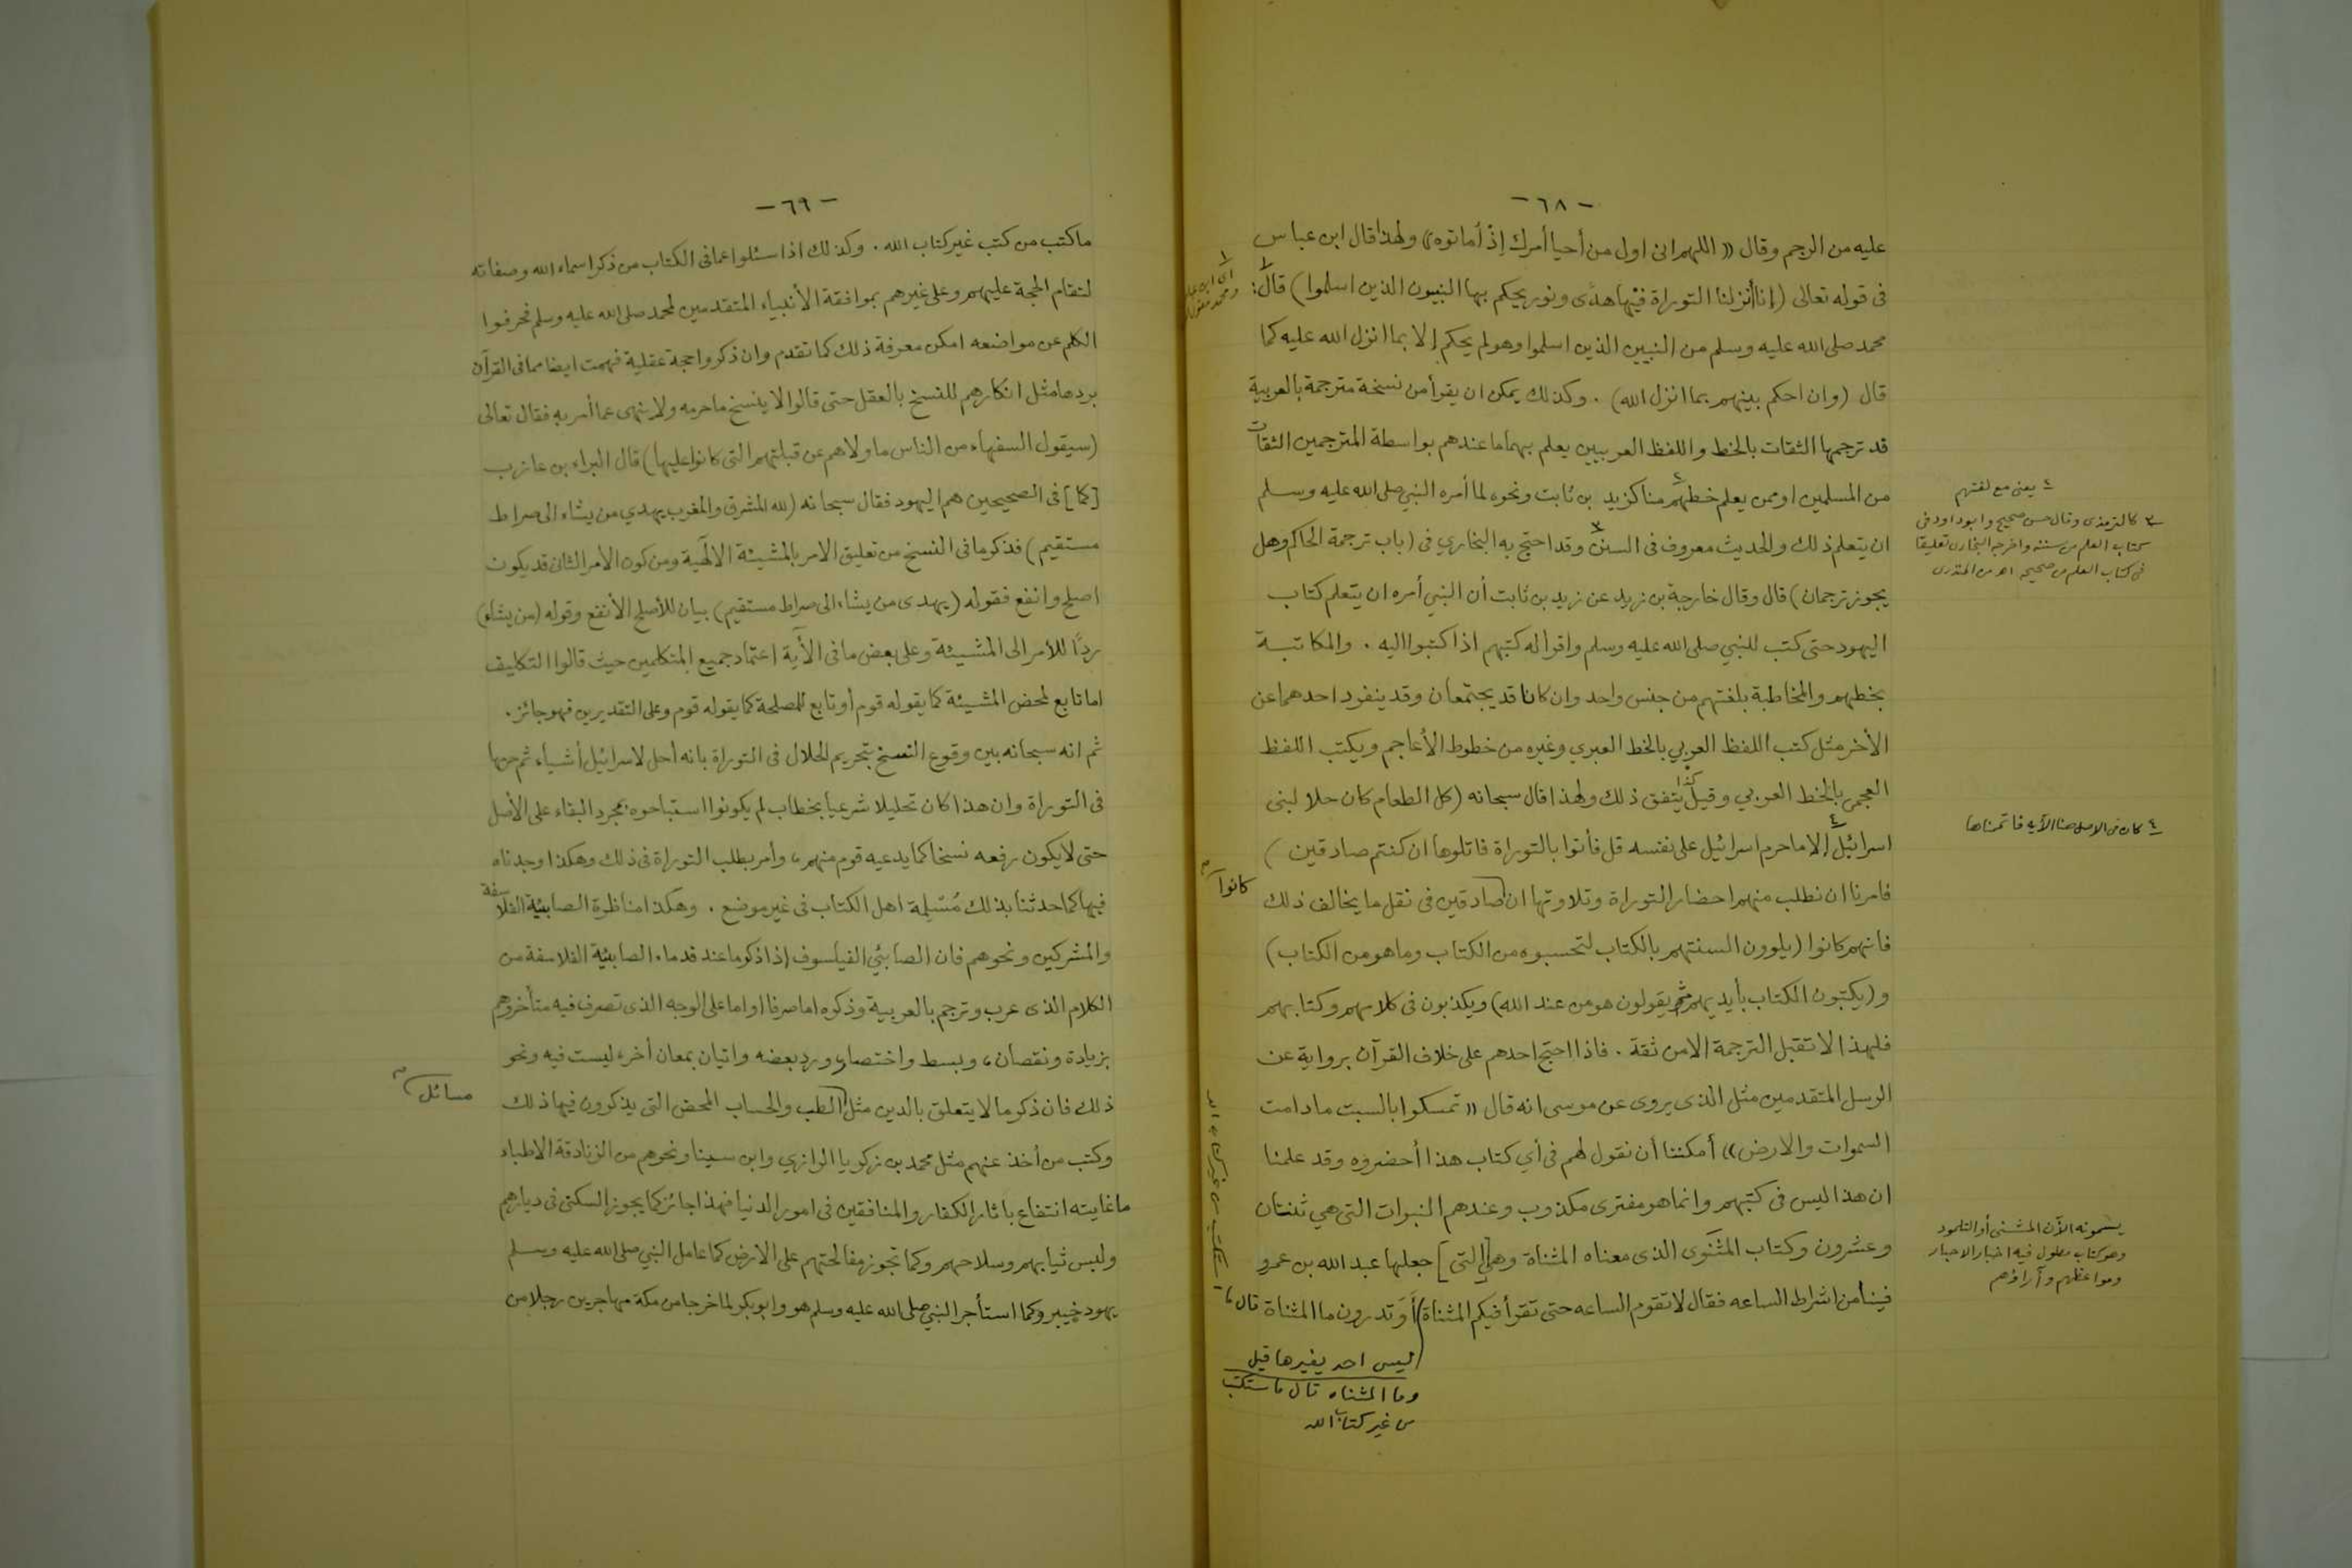 - ٦٨ -
عليه من الرجم وقال «اللهم انى اول من أحيا أمرك إذْ أماتوه» ولهذا قال ابن عباس
فى قوله تعالى (إنا أنزلنا التوراة فيها هدًى ونور يحكم بها النبيون الذين اسلموا) قال:
محمد صلى الله عليه وسلم من النبيين الذين اسلموا وهو لم يحكم إلا بما انزل الله عليه كما
قال (وان احكم بينهم بما انزل الله) . وكذلك يمكن ان يقرأ من نسخة مترجمة بالعربية
قد ترجمها الثقات بالخط واللفظ العربيين يعلم بهما ما عندهم بواسطة المترجمين الثقات
من المسلمين او ممن يعلم خطهم منا كزيد بن ثابت ونحوه لما أمره النبي صلى الله عليه وسلم
ان يتعلم ذلك والحديث معروف فى السنن وقد احتج به البخاري فى (باب ترجمة الحاكم وهل
يجوز ترجمان) قال وقال خارجة بن زيد عن زيد بن ثابت أن النبي أمره ان يتعلم كتاب
اليهود حتى كتب للنبي صلى الله عليه وسلم واقرا له كتبهم اذا كتبوا اليه . والمكاتبة
بخطهم والمخاطبة بلغتهم من جنس واحد وان كانا قد يجتمعان وقد ينفرد احدهما عن
الأخر مثل كتب اللفظ العربي بالخط العبري وغيره من خطوط الأعاجم ويكتب اللفظ
العجمى بالخط العربي وقيل كذا يتفق ذلك ولهذا قال سبحانه (كل الطعام كان حلا لبنى
اسرائيل إلا ما حرم اسرائيل على نفسه قل فأتوا بالتوراة فاتلوها ان كنتم صادقين )
فامرنا ان نطلب منهم احضار التوراة وتلاوتها ان صادقين فى نقل ما يخالف ذلك
كانوا
فانهم كانوا (يلوون السنتهم بالكتاب لتحسبوه من الكتاب وما هو من الكتاب)
و (يكتبون الكتاب بأيديهم ثم يقولون هو من عند الله) ويكذبون فى كلامهم وكتابهم
فلهذا لا تقبل الترجمة الا من ثقة . فاذا احتج احدهم على خلاف القرآن برواية عن
الرسل المتقدمين مثل الذى يروى عن موسى انه قال «تمسكوا بالسبت ما دامت
السموات والارض» أمكننا أن نقول لهم فى أي كتاب هذا أحضروه وقد علمنا
ان هذا ليس فى كتبهم وانما هو مفترى مكذوب وعندهم النبوات التى هي ثنتان
وعشرون وكتاب المثنَوى الذى معناه المثناة وهي [التى] جعلها عبد الله بن عمرو
فينا من اشراط الساعه فقال لا تقوم الساعه حتى تقرأ فيكم المثناة أَوَتدرون ما المثناة قال
ليس احد يغيرها قيل
وما المثناه قال ما ستكتب
من غير كتاب الله
٤ يعنى مع لغتهم
٣ كالترمذى وقال حسن صحيح وابو داود فى
كتاب العلم من سننه واخرجه البخارى تعليقا
فى كتاب العلم من صحيحه اهـ من المنذرى
٤ كان فى الاصل هنا الآيه فأتممناها
يسمونه الآن المشنى أو التلمود
وهو كتاب مطول فيه اخبار الاحبار
ومواعظهم وآراؤهم
- ٦٩ -
ما كتب من كتب غير كتاب الله . وكذلك اذا سئلوا عما فى الكتاب من ذكر اسماء الله وصفاته
لتقام الحجة عليهم وعلى غيرهم بموافقة الأنبياء المتقدمين لمحمد صلى الله عليه وسلم فحرفوا
الكلم عن مواضعه امكن معرفة ذلك كما تقدم وان ذكروا حجة عقلية فهمت ايضا مما فى القرآن
بردها مثل انكارهم للنسخ بالعقل حتى قالوا لا ينسخ ما حرمه ولا ينهى عما أمر به فقال تعالى
(سيقول السفهاء من الناس ما ولاهم عن قبلتهم التى كانوا عليها) قال البراء بن عازب
[كما] فى الصحيحين هم اليهود فقال سبحانه (لله المشرق والمغرب يهدي من يشاء الى صراط
مستقيم) فذكر ما فى النسخ من تعليق الامر بالمشيئة الالٓهية ومن كون الأمر الثانى قد يكون
اصلح وانفع فقوله (يهدى من يشاء الى صراط مستقيم) بيان للأصلح الأنفع وقوله (من يشاء)
ردًّا للأمر الى المشيئة وعلى بعض ما فى الآية اعتماد جميع المتكلمين حيث قالوا التكليف
اما تابع لمحض المشيئة كما يقوله قوم أو تابع للمصلحة كما يقوله قوم وعلى التقديرين فهو جائز .
ثم انه سبحانه بين وقوع النسخ بتحريم الحلال فى التوراة بانه احل لاسرائيل أشياء ثم حرمها
فى التوراة وان هذا كان تحليلا شرعيا بخطاب لم يكونوا استباحوه بمجرد البقاء على الأصل
حتى لا يكون رفعه نسخا كما يدعيه قوم منهم، وامر بطلب التوراة فى ذلك وهكذا وجدناه
فيها كما حدثنا بذلك مُسْلِمة اهل الكتاب فى غير موضع . وهكذا مناظرة الصابئية الفلاسفة
والمشركين ونحوهم فان الصابئي الفيلسوف إذا ذكر ما عند قدماء الصابئية الفلاسفة من
الكلام الذى عرب وترجم بالعربية وذكره اما صرفا او اما على الوجه الذى تصرف فيه متأخروهم
بزيادة ونقصان، وبسط واختصار، ورد بعضه واتيان بمعان أخر، ليست فيه ونحو
ذلك فان ذكر ما لا يتعلق بالدين مثل الطب والحساب المحض التى يذكرون فيها ذلك
مسائل
وكتب من أخذ عنهم مثل محمد بن زكريا الرازي وابن سينا ونحوهم من الزنادقة الاطباء
ما غايته انتفاع باثار الكفار والمنافقين فى امور الدنيا فهذا جائز كما يجوز السكنى فى ديارهم
ولبس ثيابهم وسلاحهم وكما تجوز معاملتهم على الارض كما عامل النبي صلى الله عليه وسلم
يهود خيبر وكما استأجر النبي صلى الله عليه وسلم هو وابو بكر لما خرجا من مكة مهاجرين رجلا من